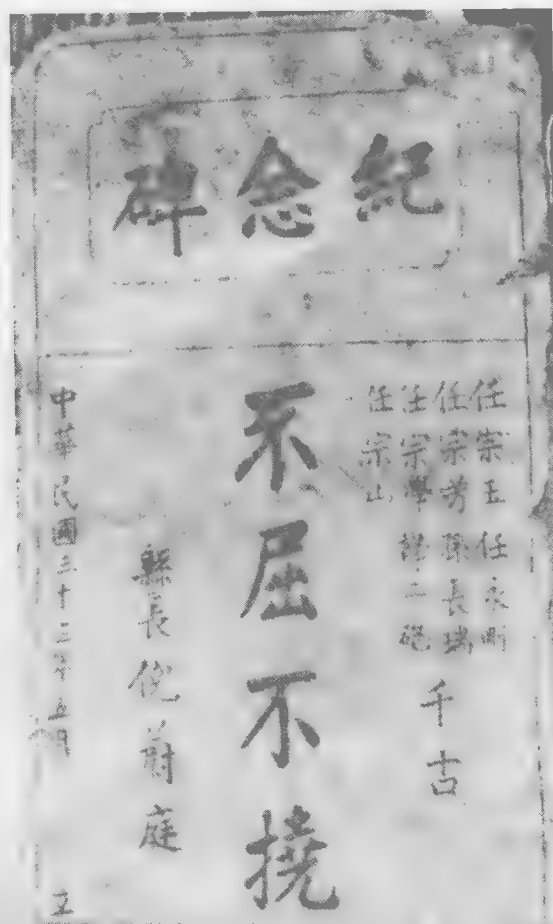 紀念碑
任宗玉 任永
任宗芳 孫長瑞
任宗學
任宗山
千古
不屈不撓
縣長 蔚庭
中華民國三十三年五月 立